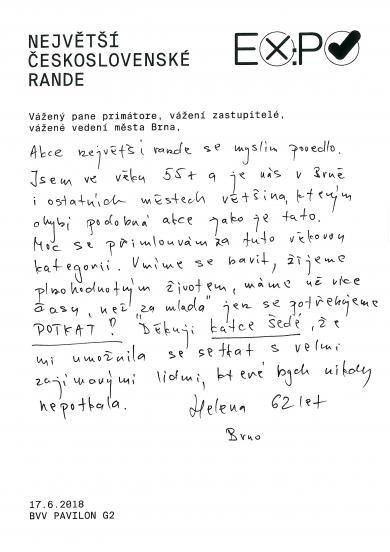 NEJVĚTŠÍ
ČESKOSLOVENSKÉ
RANDE
EX:PO
Vážený pane primátore, vážení zastupitelé,
vážené vedení města Brna,
Akce největší rande se myslím povedlo.
Jsem ve věku 55+ a je nás v Brně
i ostatních městech většina, kterým
chybí podobná akce jako je tato.
Moc se přimlouvám za tuto věkovou
kategorii. Umíme se bavit, žijeme
plnohodnotným životem, máme už více
času, než "za mlada" jen se potřebujeme
POTKAT! Děkuji Katce Šedé, že
mi umožnila se setkat s velmi
zajímavými lidmi, které bych nikdy
nepotkala.
Helena 62 let
Brno
17.6.2018
BVV PAVILON G2